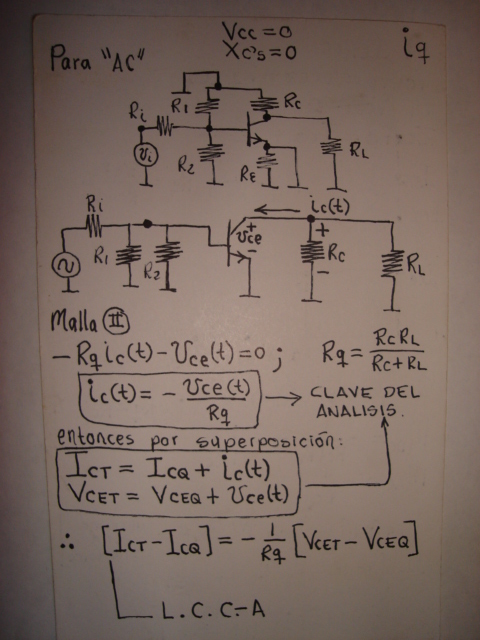 Vcc=0
Xc's=0
iq
Para "AC"
R1
Rc
Ri
RL
Vi
R2
RE
Ri
ic(t)
R1
R2
+
Vce
-
+
Rc
-
RL
Malla II
-Rq ic(t)-Vce(t)=0 ; Rq = RcRL/Rc+RL
ic(t) = - Vce(t)/Rq → CLAVE DEL
ANALISIS.
entonces por superposición:
ICT = ICQ + ic(t)
VCET = VCEQ + Vce(t)
∴ [ICT-ICQ] = - 1/Rq [VCET-VCEQ]
L.C.C-A